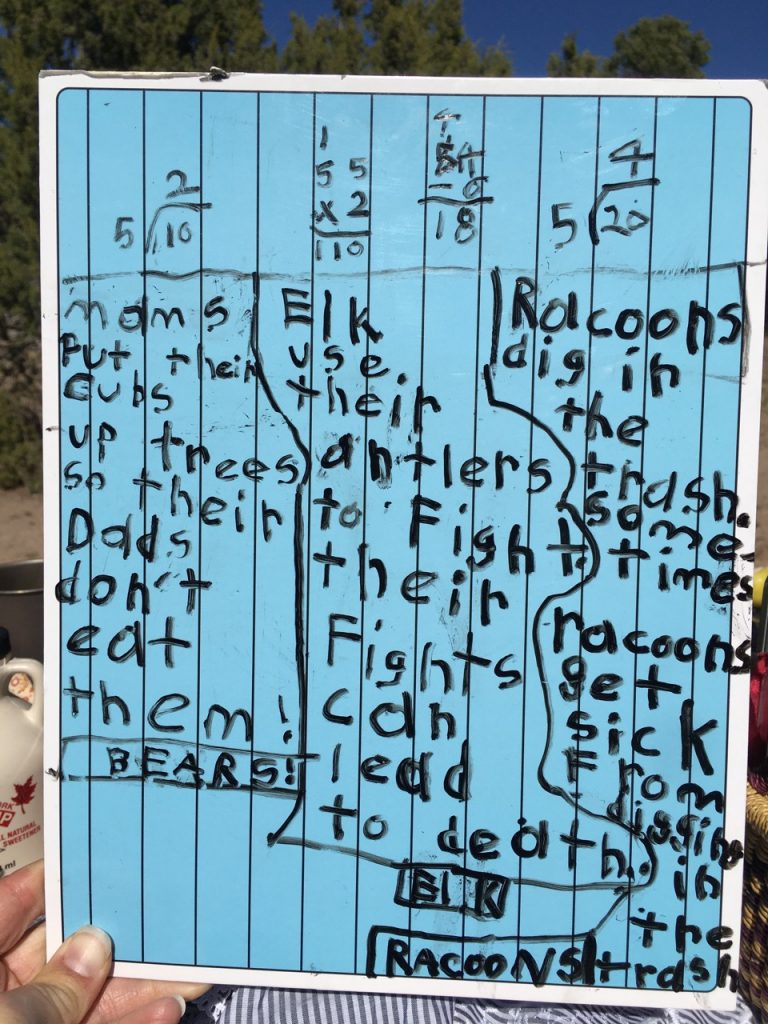 2
5 10
1
5 5
x 2
110
18
4
5 20
moms
Put their
Cubs
up trees
so their
Dads
don't
eat
them!
BEARS!
Elk
use
their
antlers
to Fight.
their
Fights
can
lead
to death.
Elk
Racoons
dig in
the
trash.
some
times
racoons
get
sick
From
digging
in
the
trash
RACOONS
NATURAL
SWEETENER
ml